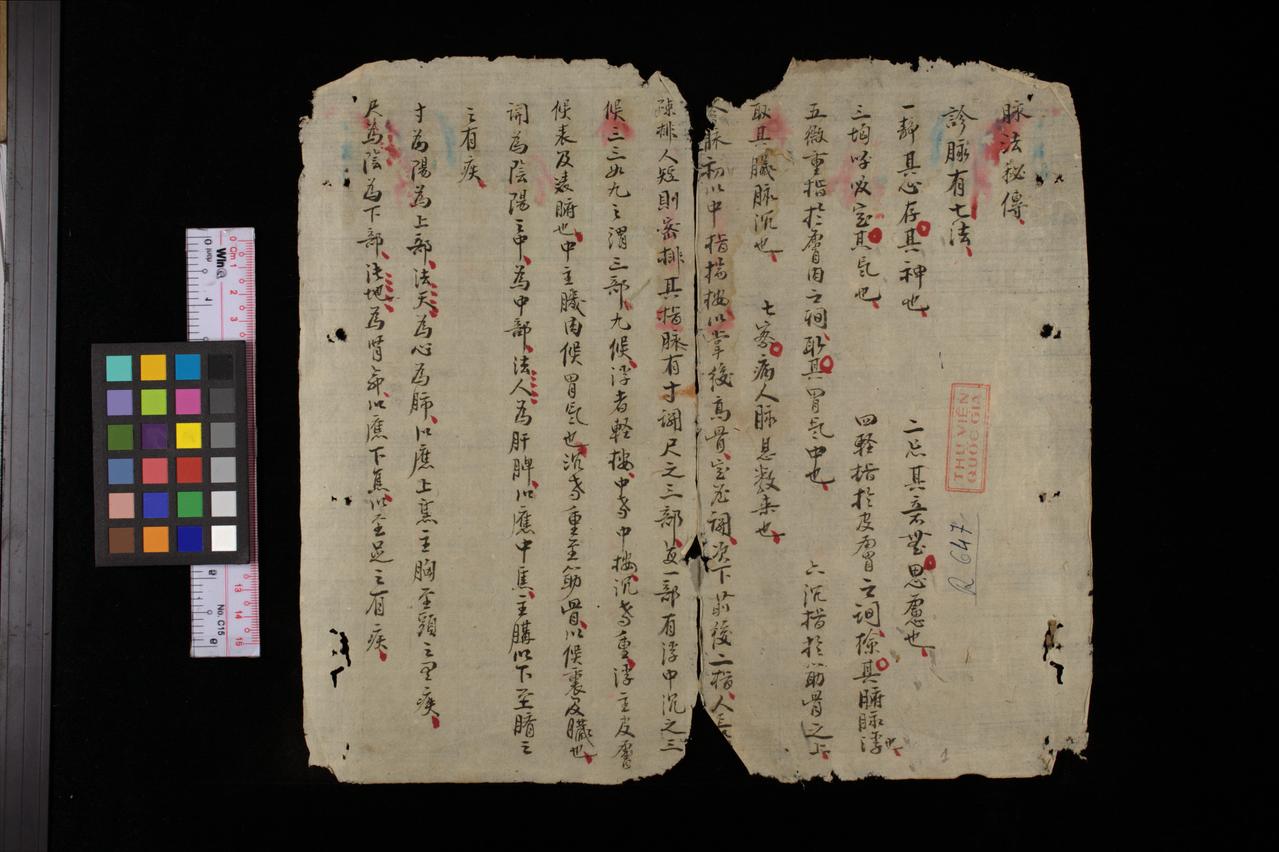 脉法秘傳
診脉有七法
一靜其心存其神也
二忘其意無思慮也
三均呼吸定其氣也
四軽指於皮膚之间捡其腑脉浮也
五微重指於膚肉之间取其胃氣中也
六沉指於筋骨之上
取其臟脉沉也
七察病人脉息数来也
脉初以中指揣按以掌後高骨定為関次下前後二指人長
疎排人短則密排其指脉有寸関尺之三部每一部有浮中沉之三
候三三如九之謂三部九候浮者軽按中者中按沉者重浮主皮膚
候表及表腑也中主臟肉候胃氣也沉者重至筋骨以候裏及臟也
関為陰陽之中為中部法人為肝脾以應中焦主膈以下至臍之
之有疾
寸為陽為上部法天為心為肺以應上焦主胸至頭之有疾
尺為陰為下部法地為腎命以應下焦以至足之有疾
THƯ VIỆN
QUỐC GIA
R 647
1
Cm 1
2
3
13
14
15
No. C15